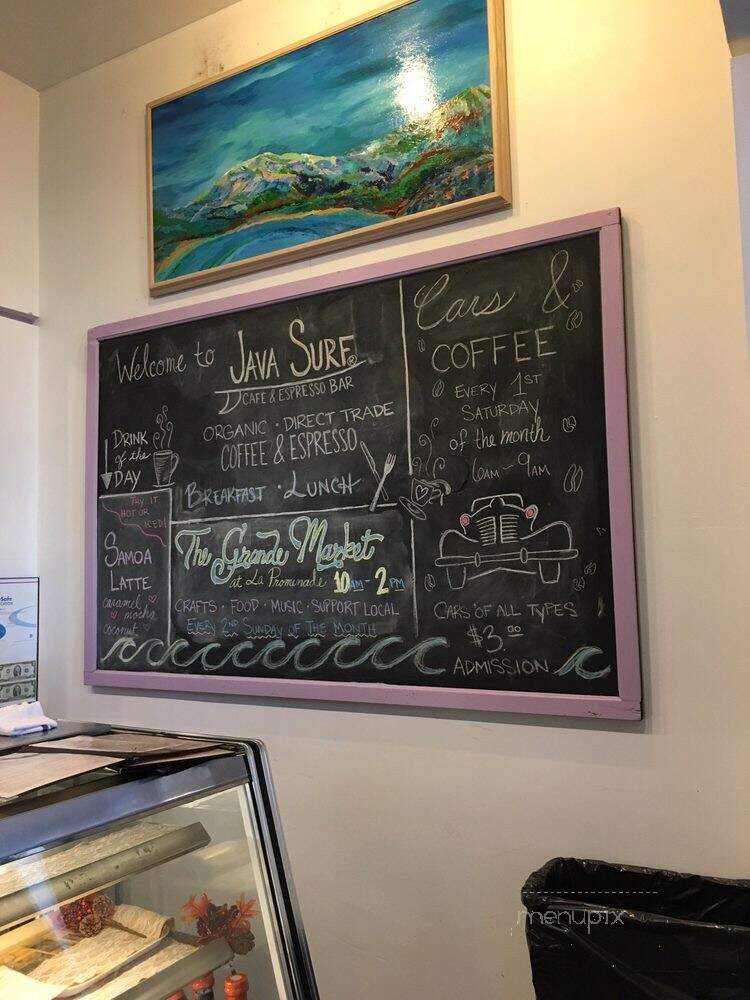 Welcome to JAVA SURF®
CAFE & ESPRESSO BAR
ORGANIC · DIRECT TRADE
COFFEE & ESPRESSO
BREAKFAST · LUNCH
DRINK
of the
DAY
TRY IT
HOT OR
ICED!
SAMOA
LATTE
caramel
mocha
coconut
The Grande Market
at La Promenade 10AM - 2PM
CRAFTS · FOOD · MUSIC · SUPPORT LOCAL
EVERY 2ND SUNDAY OF THE MONTH
Cars &
COFFEE
EVERY 1ST
SATURDAY
of the month
6AM - 9AM
CARS OF ALL TYPES
$3.00
ADMISSION
menupix